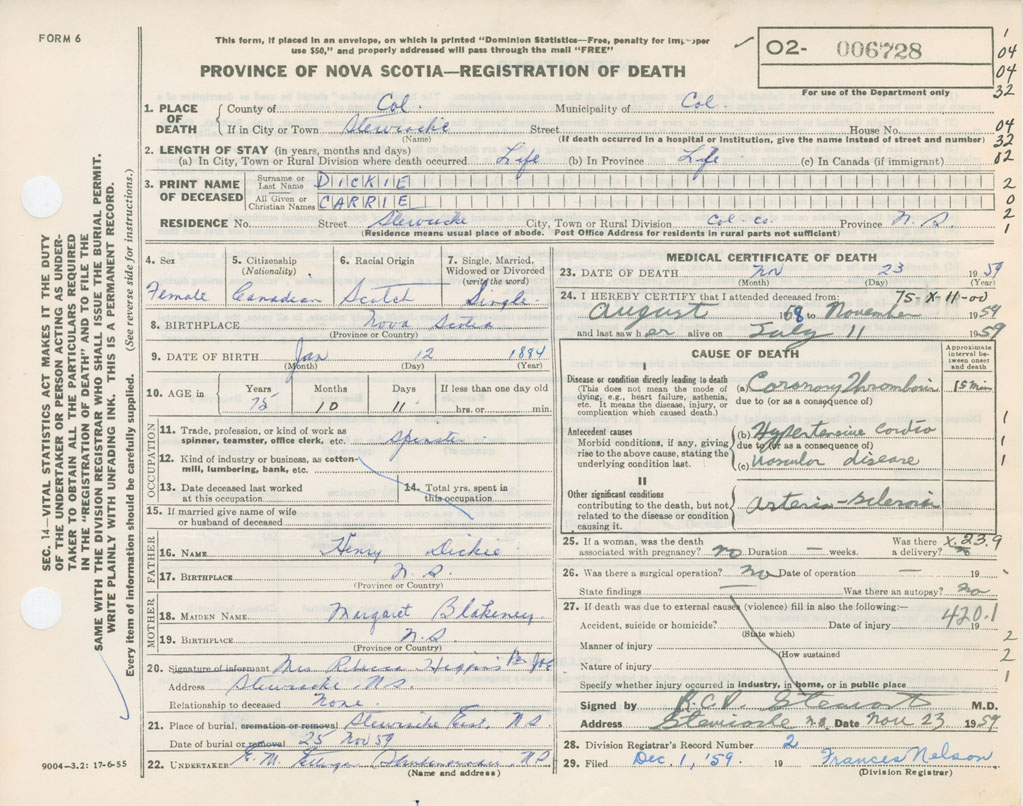 FORM 6
This form, if placed in an envelope, on which is printed "Dominion Statistics—Free, penalty for improper
use $50," and properly addressed will pass through the mail "FREE"
PROVINCE OF NOVA SCOTIA—REGISTRATION OF DEATH
02- 006728
For use of the Department only
1
04
04
32
04
32
02
2
0
2
1
1. PLACE OF DEATH
County of Col. Municipality of Col.
If in City or Town Stewiacke Street House No.
(Name) (If death occurred in a hospital or institution, give the name instead of street and number)
2. LENGTH OF STAY (in years, months and days)
(a) In City, Town or Rural Division where death occurred Life (b) In Province Life (c) In Canada (if immigrant)
3. PRINT NAME OF DECEASED
Surname or Last Name DICKIE
All Given or Christian Names CARRIE
RESIDENCE No. Street Stewiacke City, Town or Rural Division Col. Co. Province N.S.
(Residence means usual place of abode. Post Office Address for residents in rural parts not sufficient)
4. Sex
Female
5. Citizenship
(Nationality)
Canadian
6. Racial Origin
Scotch
7. Single, Married,
Widowed or Divorced
(write the word)
Single.
8. BIRTHPLACE Nova Scotia
(Province or Country)
9. DATE OF BIRTH Jan 12 1884
(Month) (Day) (Year)
10. AGE in
Years Months Days If less than one day old
75 10 11 hrs. or min.
OCCUPATION
11. Trade, profession, or kind of work as
spinner, teamster, office clerk, etc. Spinster
12. Kind of industry or business, as cotton-
mill, lumbering, bank, etc.
13. Date deceased last worked
at this occupation
14. Total yrs. spent in
this occupation
15. If married give name of wife
or husband of deceased
FATHER
16. NAME Henry Dickie
17. BIRTHPLACE N.S.
(Province or Country)
MOTHER
18. MAIDEN NAME Margaret Blakeney
19. BIRTHPLACE N.S.
(Province or Country)
20. Signature of informant Mrs Rebecca Higgins Per
Address Stewiacke N.S.
Relationship to deceased None.
21. Place of burial, cremation or removal Stewiacke East, N.S.
Date of burial or removal 25 Nov 59
22. UNDERTAKER N.S.
(Name and address)
MEDICAL CERTIFICATE OF DEATH
23. DATE OF DEATH Nov 23 1959
(Month) (Day) (Year)
24. I HEREBY CERTIFY that I attended deceased from: 75-X-11-00
August 1958 to November 1959
and last saw her alive on July 11 1959
CAUSE OF DEATH
Approximate
interval be-
tween onset
and death
I
Disease or condition directly leading to death
(This does not mean the mode of
dying, e.g., heart failure, asthenia,
etc. It means the disease, injury, or
complication which caused death.)
(a) Coronary Thrombosis 15 min
due to (or as a consequence of)
Antecedent causes
Morbid conditions, if any, giving
rise to the above cause, stating the
underlying condition last.
(b) Hypertensive Cardio
due to (or as a consequence of)
(c) Vascular disease
1
1
1
II
Other significant conditions
contributing to the death, but not
related to the disease or condition
causing it.
Arterio-Sclerosis
25. If a woman, was the death
associated with pregnancy? no Duration — weeks.
Was there a delivery? no
X.23.9
26. Was there a surgical operation? no Date of operation — 19
State findings — Was there an autopsy? no
27. If death was due to external causes (violence) fill in also the following:—
420.1
Accident, suicide or homicide? Date of injury 19
(State which)
Manner of injury
(How sustained
Nature of injury
2
2
1
Specify whether injury occurred in industry, in home, or in public place
Signed by R.C.D. Stewart M.D.
Address Stewiacke N.S. Date Nov 23 1959
28. Division Registrar's Record Number 2
29. Filed Dec. 1, '59. 19 Frances Nelson
(Division Registrar)
SEC. 14—VITAL STATISTICS ACT MAKES IT THE DUTY
OF THE UNDERTAKER OR PERSON ACTING AS UNDER-
TAKER TO OBTAIN ALL THE PARTICULARS REQUIRED
IN THE "REGISTRATION OF DEATH" AND TO FILE THE
SAME WITH THE DIVISION REGISTRAR WHO SHALL ISSUE THE BURIAL PERMIT.
WRITE PLAINLY WITH UNFADING INK. THIS IS A PERMANENT RECORD.
Every item of information should be carefully supplied. (See reverse side for instructions.)
9004-3.2: 17-6-55